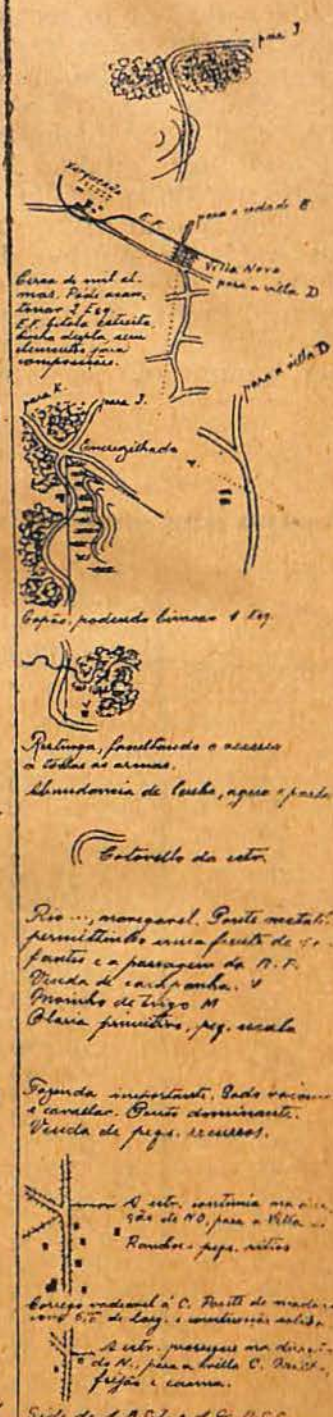 para J
Xarqueada
E.F.
para a cidade E
Villa Nova
para a villa D
Cerca de mil al-
mas. Pode acan-
tonar 1 Esq.
E.F. bitola estreita
linha dupla, sem
elementos para
composições.
para K
para J.
Encruzilhada
para a villa D
Capão, podendo bivacar 1 Esq.
Restinga, facultando o accesso
a todas as armas.
Abundancia de lenha, agua e pasto
Cotovello da estr.
Rio ..., navegavel. Ponte metal
permittindo uma frente de
fantes e a passagem da A. P.
Venda de campanha. V
Moinho de trigo M
Olaria primitiva, peq. escala
Fazenda importante. Gado vaccum
e cavallar. Ponto dominante.
Venda de peqs. recursos.
A estr. continúa na
ção de NO, para a Villa
Ranchos e peqs. sitios
Corrego vadeavel á C. Ponte de madeira
com de larg. e construcção solida
A estr. prosegue na direcç
do N., para a villa C.
feijão e canna.